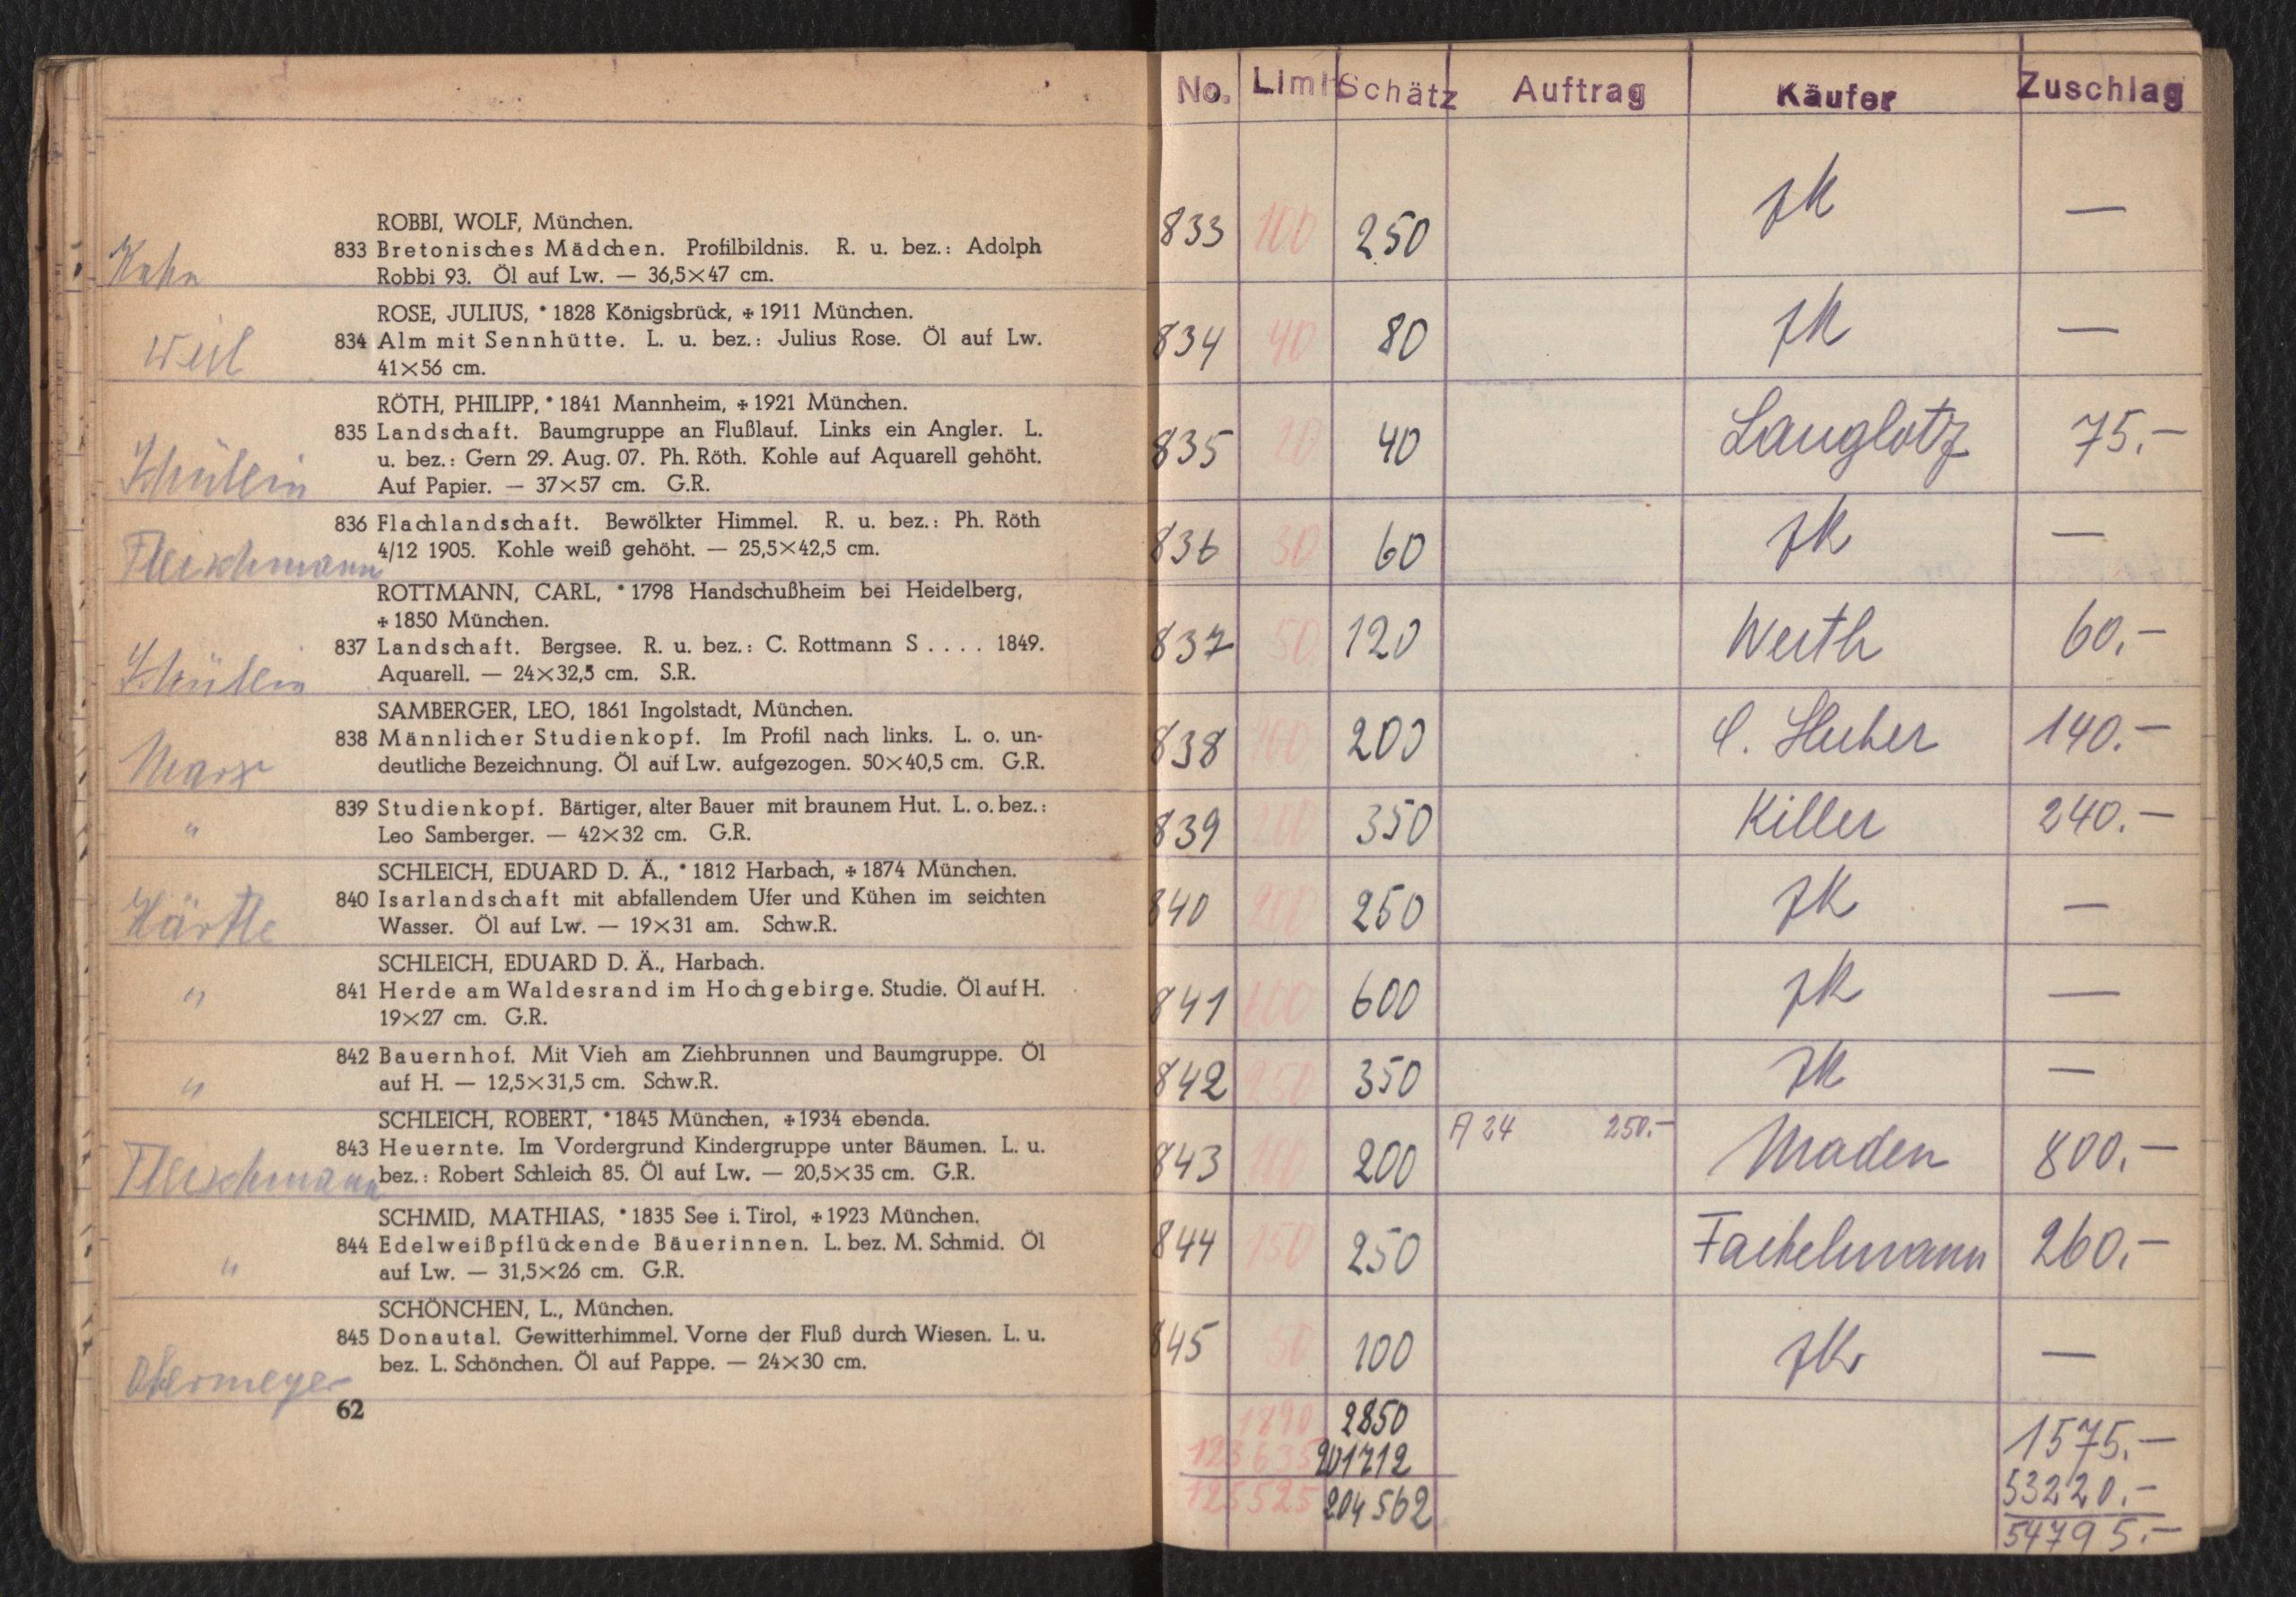 ROBBI, WOLF, München.
Kahn
833 Bretonisches Mädchen. Profilbildnis. R. u. bez.: Adolph
Robbi 93. Öl auf Lw. — 36,5×47 cm.
ROSE, JULIUS, *1828 Königsbrück, ✠1911 München.
Weil
834 Alm mit Sennhütte. L. u. bez.: Julius Rose. Öl auf Lw.
41×56 cm.
RÖTH, PHILIPP, *1841 Mannheim, ✠1921 München.
835 Landschaft. Baumgruppe an Flußlauf. Links ein Angler. L.
u. bez.: Gern 29. Aug. 07. Ph. Röth. Kohle auf Aquarell gehöht.
Schülein
Auf Papier. — 37×57 cm. G.R.
836 Flachlandschaft. Bewölkter Himmel. R. u. bez.: Ph. Röth
Fleischmann
4/12 1905. Kohle weiß gehöht. — 25,5×42,5 cm.
ROTTMANN, CARL, *1798 Handschußheim bei Heidelberg,
✠1850 München.
837 Landschaft. Bergsee. R. u. bez.: C. Rottmann S . . . . 1849.
Schülein
Aquarell. — 24×32,5 cm. S.R.
SAMBERGER, LEO, 1861 Ingolstadt, München.
838 Männlicher Studienkopf. Im Profil nach links. L. o. un-
Marx
deutliche Bezeichnung. Öl auf Lw. aufgezogen. 50×40,5 cm. G.R.
839 Studienkopf. Bärtiger, alter Bauer mit braunem Hut. L. o. bez.:
"
Leo Samberger. — 42×32 cm. G.R.
SCHLEICH, EDUARD D. Ä., *1812 Harbach, ✠1874 München.
840 Isarlandschaft mit abfallendem Ufer und Kühen im seichten
Härtle
Wasser. Öl auf Lw. — 19×31 am. Schw.R.
SCHLEICH, EDUARD D. Ä., Harbach.
" 841 Herde am Waldesrand im Hochgebirge. Studie. Öl auf H.
19×27 cm. G.R.
842 Bauernhof. Mit Vieh am Ziehbrunnen und Baumgruppe. Öl
" auf H. — 12,5×31,5 cm. Schw.R.
SCHLEICH, ROBERT, *1845 München, ✠1934 ebenda.
843 Heuernte. Im Vordergrund Kindergruppe unter Bäumen. L. u.
Fleischmann
bez.: Robert Schleich 85. Öl auf Lw. — 20,5×35 cm. G.R.
SCHMID, MATHIAS, *1835 See i. Tirol, ✠1923 München.
844 Edelweißpflückende Bäuerinnen. L. bez. M. Schmid. Öl
" auf Lw. — 31,5×26 cm. G.R.
SCHÖNCHEN, L., München.
845 Donautal. Gewitterhimmel. Vorne der Fluß durch Wiesen. L. u.
bez. L. Schönchen. Öl auf Pappe. — 24×30 cm.
Obermeyer
62
No. Limit Schätz Auftrag Käufer Zuschlag
833 100 250 —
834 40 80 —
835 20 40 Langlotz 75.-
836 30 60 —
837 50 120 Werth 60.-
838 100 200 Huber 140.-
839 200 350 Killer 240.-
840 200 250 —
841 600 —
842 250 350 —
843 100 200 A 24 250.- Maden 800.-
844 150 250 Fackelmann 260.-
845 50 100 —
1890 2850 1575.-
123635 201712 53220.-
125525 204562 54795.-